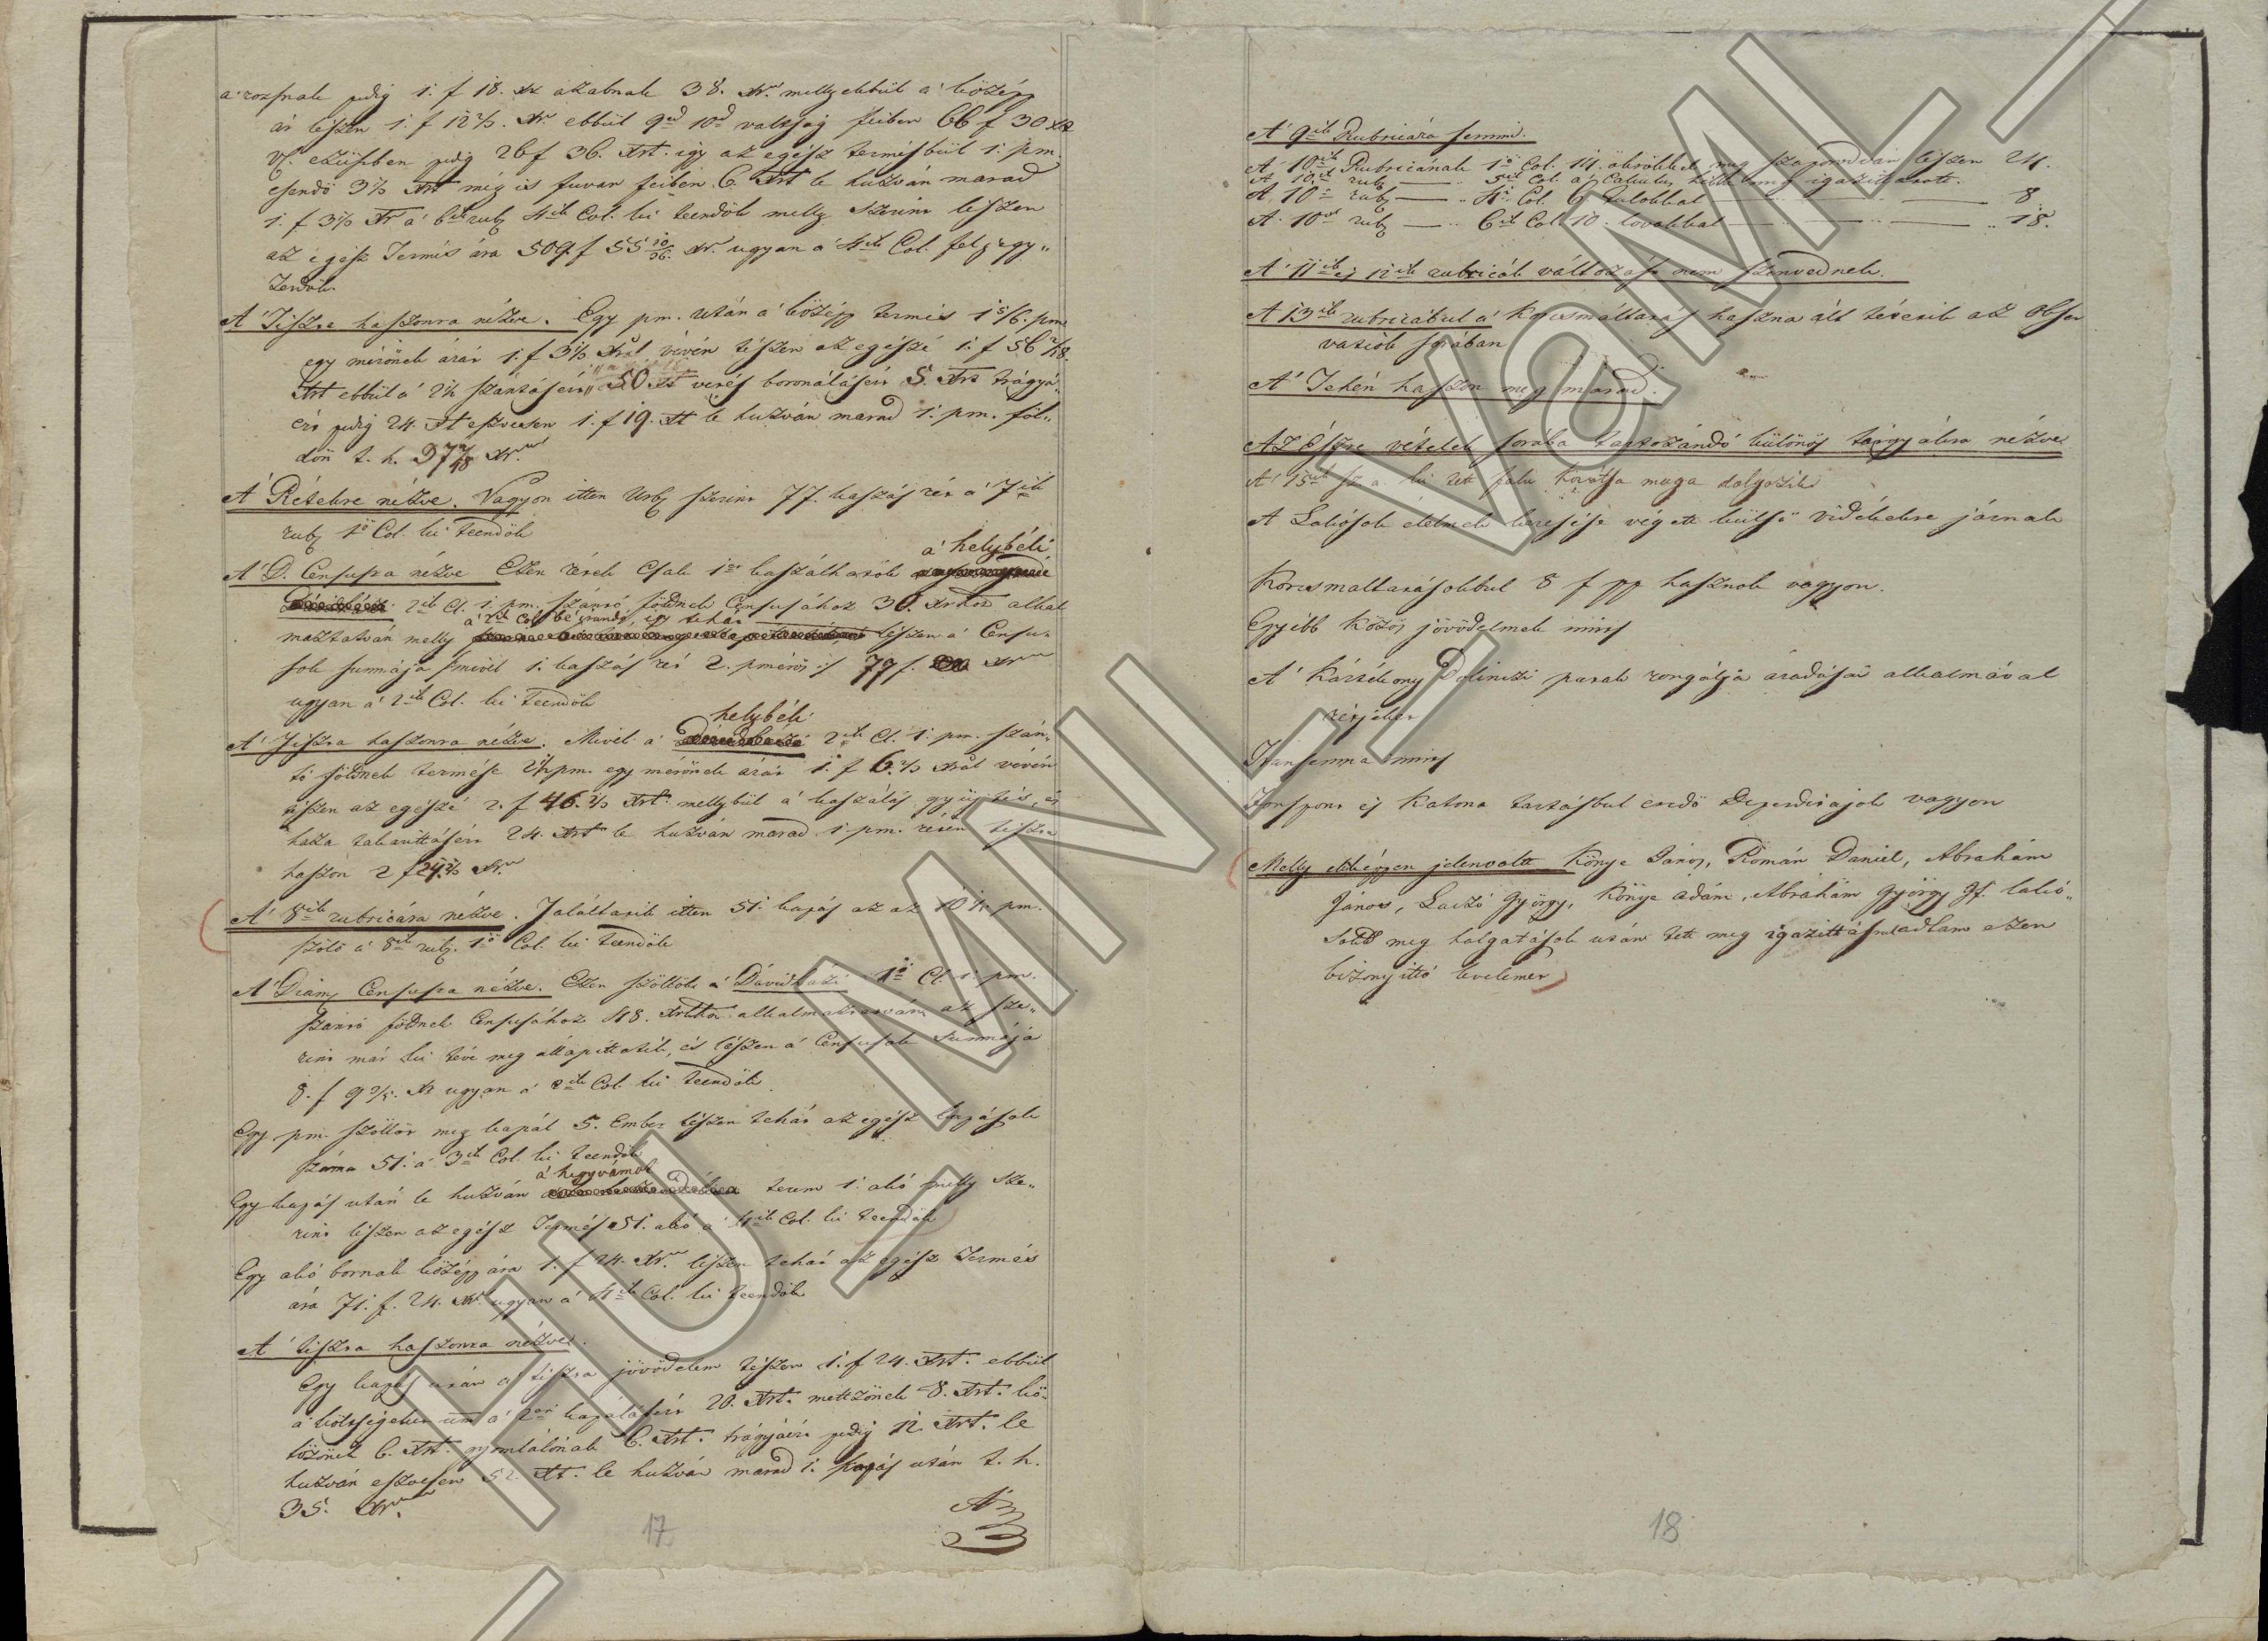 a' rozsnak pedig 1. f 18. xr a zabnak 38. Xr. mellyekbűl a' közép
ár lészen 1. f 12 2/3. Xr ebbűl 9ed 10ed valtság feiben 66 f 30 xr
Vf. ezüstben pedig 26 f 36. Xrt. igy az egész termésbűl 1. pm.
esendő 3 1/3 Xrt még is fuvar feiben 6. Xrt le huzván marad
1. f 3 1/3 Xr a' 6ik rub. 4ik Col. ki teendők melly szerint lészen
az egész Termés ára 509. f 55 10/36. Xr. ugyan a 4ik Col. feljegy„
zendők.
A' Tiszta haszonra nézve. Egy pm. után a' közép termés 1 5/6. pm
egy mérőnek árát 1. f 3 1/3 Xrál vévén tészen az egészé 1. f 56 2/18.
Xrt ebbűl a' 2 1/2 szántásért 50 Xrt vetés boronálásért 5. Xrt trágyá„
ért pedig 24. Xrt eszvesen 1. f 19. Xt le huzván marad 1. pm. föl„
dön t. h. 37 2/18 Xr.
A' Rétekre nézve. Vagyon itten Urb. szerint 77. kaszás rét a' 7ik
rub. 1ő Col. ki teendők
a' helybéli
A' D. Censusra nézve Ezen rétek Csak 1er kaszálhatók
2ik Cl. 1. pm. szántó földnek Censusához 30. Xrhoz alkal
a' 2ik Col. be irandó, igy tehát
maztatván melly lészen a' Censu„
sok summája mivel 1. kaszás rét 2. pmérős is 77 f. Xr
ugyan a' 2ik Col. ki Teendők
helybéli
A' Tiszta haszonra nézve. Mivel a' 2ik Cl. 1. pm. szán„
tó földnek termése 2 1/2 pm. egy mérőnek árát 1. f 6. 2/3 Xrál vévén
tészen az egészé 2. f 46. 2/3 Xrt. mellybűl a' kaszálás gyüjtés, és
haza takarittásért 24. Xrt le huzván marad 1. pm. réten tiszta
haszon 2 f 22. 2/3 Xr.
A' 8ik rubricára nézve. Találtatik itten 51. kapás az az 10 1/5 pm.
szőlő a' 8ik rub. 1ő Col. ki teendők
A' Dicam. Censusra nézve. Ezen szőllők a' Dávidházi 1ő Cl. 1. pm.
szántó földnek Censusához 48. Xrhoz alkalmaztatván az sze„
rint már ki téve meg állapittatik, és lészen a' Censusok Summája
8. f 9 3/5. Xr ugyan a' 2ik Col. ki teendők.
Egy pm. szőllőt meg kapál 5. Ember lészen tehát az egész kapások
száma 51. a' 3ik Col. ki teendők
a' hegyvámot
Egy kapás után le huzván terem 1. akó melly sze„
rint lészen az egész Termés 51. akó a' 4ik Col. ki teendők
Egy akó bornak közép ára 1. f 24. Xr. lészen tehát az egész Termés
ára 71. f. 24. Xr. ugyan a' 4ik Col. ki teendők
A' tiszta haszonra nézve.
Egy kapás után a' tiszta jövödelem tészen 1. f 24. Xrt. ebbűl
a' költségeket um a' 2ori kapálásért 20. Xrt. mettzőnek 8. Xrt. kö„
tözőnek 6. Xrt. gyomlálónak 6. Xrt. trágyáért pedig 12. Xrt. le
huzván eszvesen 52. Xt. le huzván marad 1. kapás után t. h.
35. Xr.
A'
17
A' 9ik Rubricára semmi.
A' 10ik Rubricának 1ő Col. 14. ökrökkel meg szaporodván lészen 24.
A' 10ik rub. — 3ik Col. a' Calculus hibát meg igazittatott.
A' 10ik rub. — 4ik Col. 6. tulokkal — 8.
A' 10ik rub. — 6ik Col. 10. lovakkal — 18.
A' 11ik és 12ik rubricák változást nem szenvednek.
A 13ik rubricábul a' Korcsmáltatás haszna ált tétetik az Obser
vatiók sorában
A' Tehén haszon meg marad.
Az Észre vételek sorába tartozandó különös tárgyakra nézve
A' 15ik sz. a. ki tett falu kováttsa maga dolgozik
A' Lakósok élelmek keresése végett külső vidékekre járnak
Korcsmaltatásokbul 8 f pp hasznok vagyon.
Egyébb közös jövödelmek nints
A' Kártékony Dolinczi patak rongálja áradásai alkalmával
rétjeket
Transenna nints
Forspont és Katona tartásbul eredő Deperditájok vagyon
Melly ekképpen jelenvoltt Könye János, Román Dániel, Abrahám
János, Laczó György, Könye Adám, Abrahám György Hf. lakó„
sok meg halgatások után tett meg igazittásrul adtam ezen
bizonyitó levelemet
18
HU MNL VaML